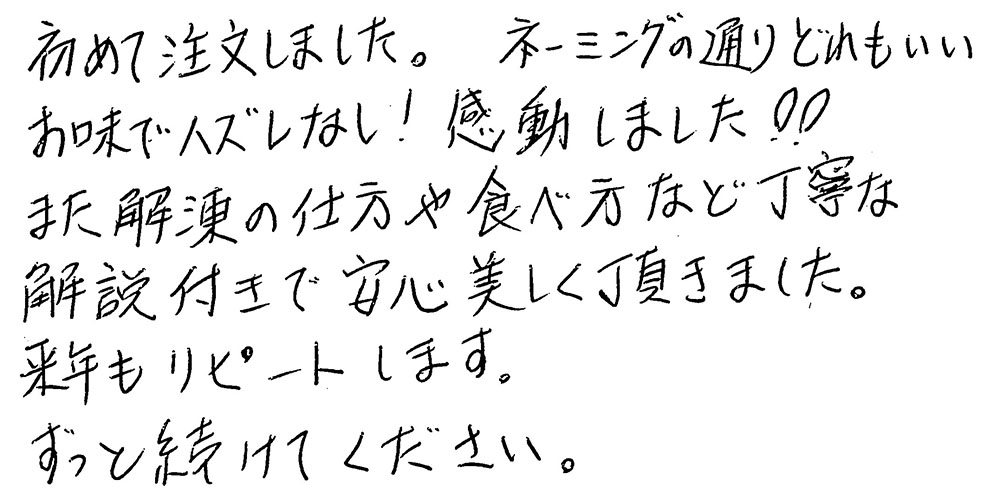 初めて注文しました。　ネーミングの通りどれもいい
お味でハズレなし！感動しました!!
また解凍の仕方や食べ方など丁寧な
解説付きで安心美しく頂きました。
来年もリピートします。
ずっと続けてください。